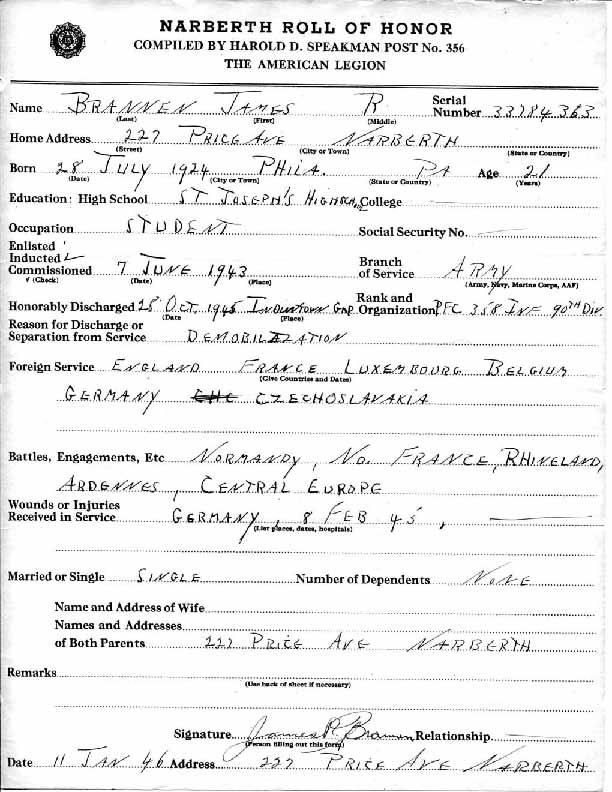 NARBERTH ROLL OF HONOR
COMPILED BY HAROLD D. SPEAKMAN POST No. 356
THE AMERICAN LEGION
Name BRANNEN JAMES R Serial Number 33784363
(Last) (First) (Middle)
Home Address 227 PRICE AVE NARBERTH
(Street) (City or Town) (State or Country)
Born 28 JULY 1924 PHILA. PA Age 21
(Date) (City or Town) (State or Country) (Years)
Education: High School ST JOSEPH'S HIGH College
Occupation STUDENT Social Security No.
Enlisted
Inducted ✓
Commissioned 7 JUNE 1943 Branch of Service ARMY
√ (Check) (Date) (Place) (Army, Navy, Marine Corps, AAF)
Honorably Discharged 28 OCT 1945 INDIANTOWN GAP Rank and Organization PFC 358 INF 90TH DIV.
(Date (Place)
Reason for Discharge or
Separation from Service DEMOBILIZATION
Foreign Service ENGLAND FRANCE LUXEMBOURG BELGIUM
(Give Countries and Dates)
GERMANY CZECHOSLAVAKIA
Battles, Engagements, Etc NORMANDY, NO. FRANCE, RHINELAND,
ARDENNES, CENTRAL EUROPE
Wounds or Injuries
Received in Service GERMANY, 8 FEB 45,
(List places, dates, hospitals)
Married or Single SINGLE Number of Dependents NONE
Name and Address of Wife
Names and Addresses
of Both Parents 227 PRICE AVE NARBERTH
Remarks
(Use back of sheet if necessary)
Signature James R Brannen Relationship
(Person filling out this form)
Date 11 JAN 46 Address 227 PRICE AVE NARBERTH